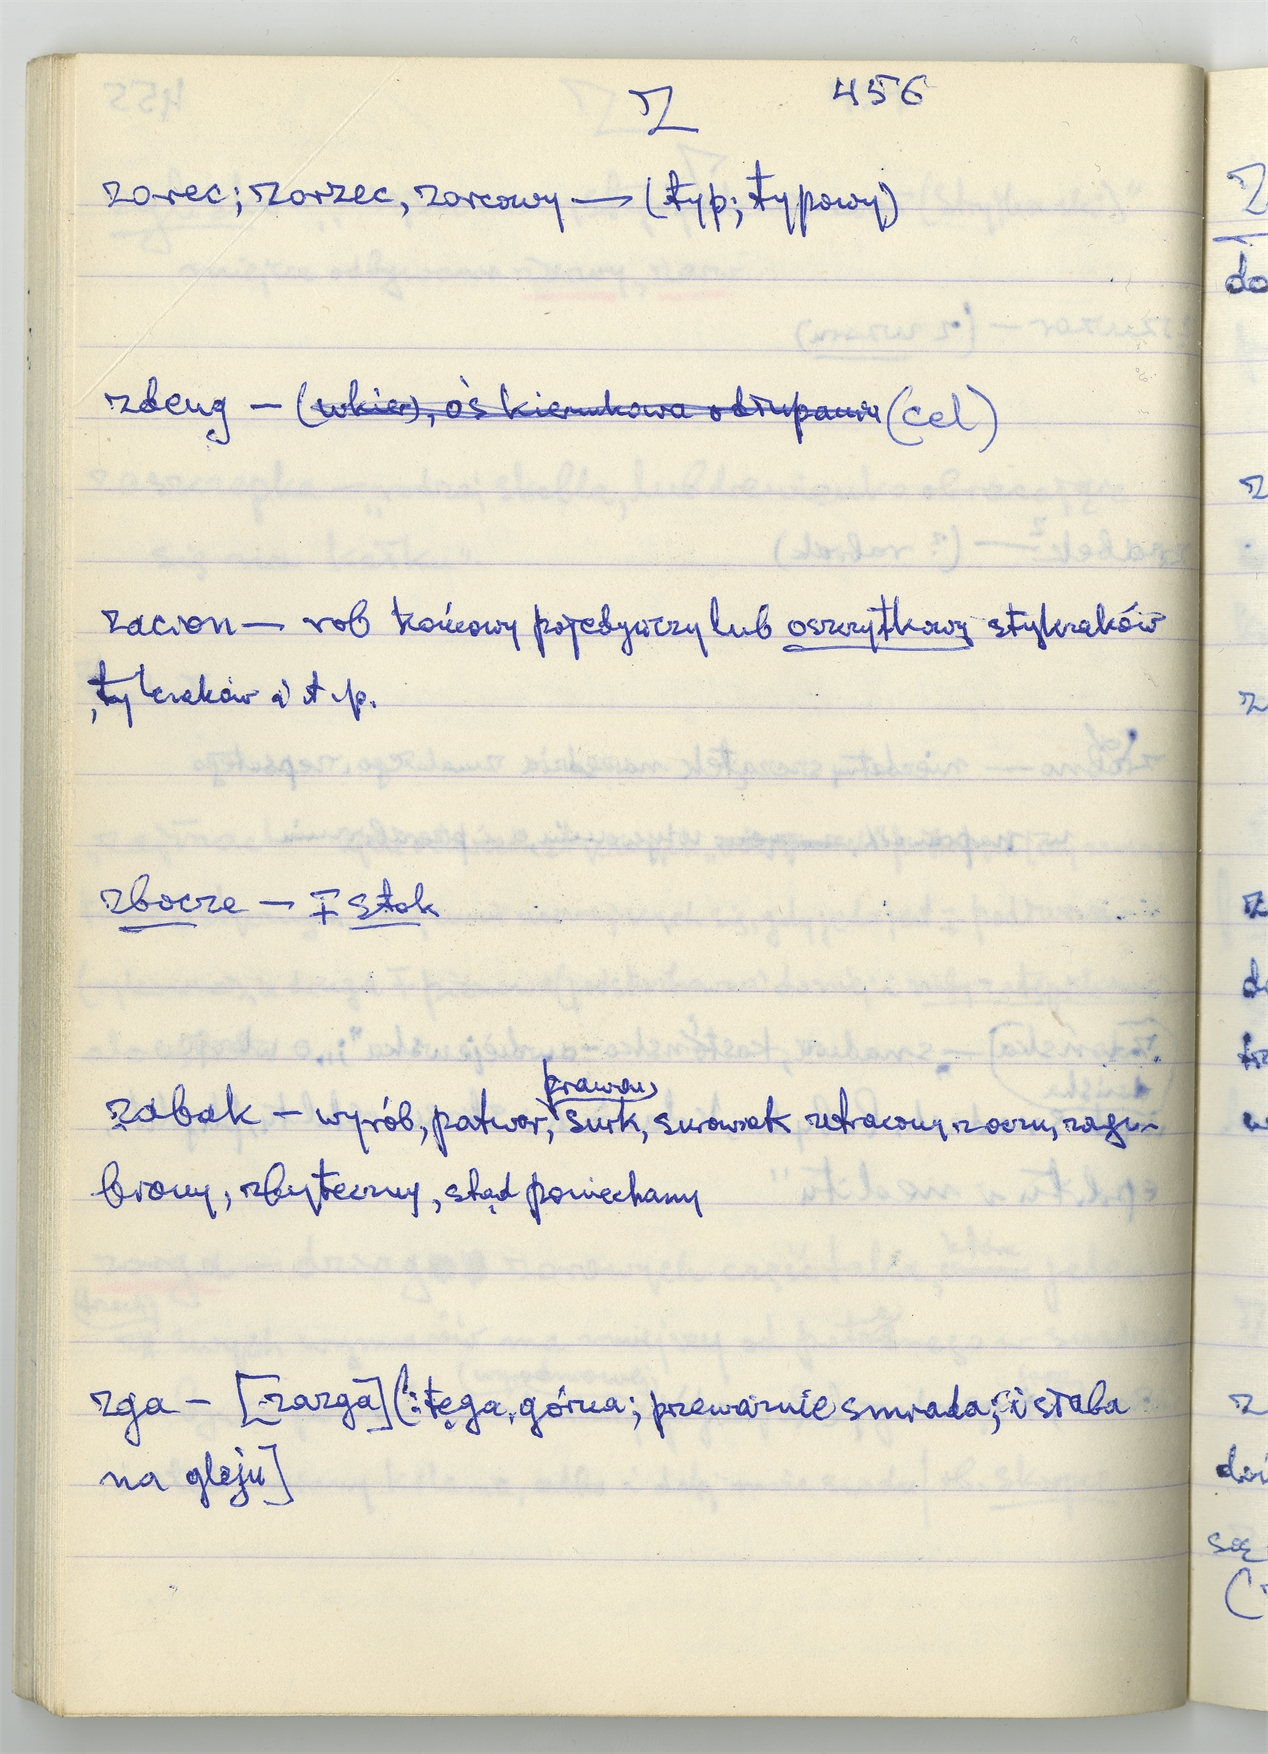 Z 456
zorec; zorzec, zorcowy → (typ; typowy)
zdeug — (wkier), oś kierunkowa odłupania (cel)
zacion — rob końcowy pojedynczy lub oszczytkowy stykzeków
, tykzeków i t.p.
zbocze — ∓ stok
prawou
zabak — wyrób, patwor, surk, surowiak zatracony, z oczu, zagu-
biony, zbyteczny, stąd poniechany
zga — [zazga] (: tęga, górna; przeważnie smrada; i słaba
na gleju]